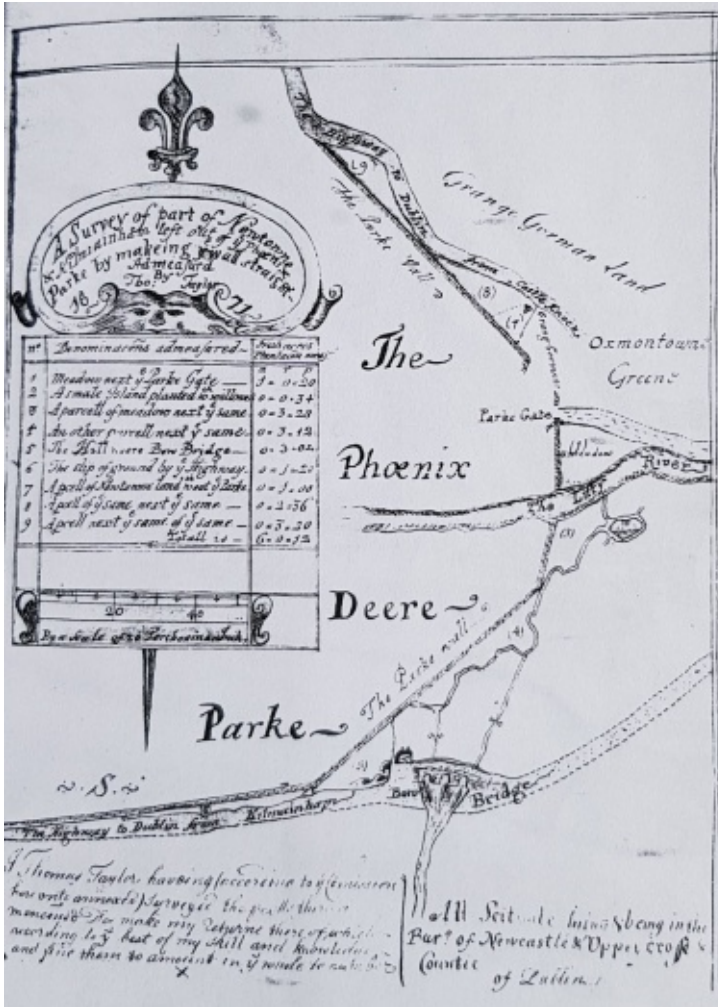 A Survey of part of Newtowne
& Kilmainham left out of yͤ Phœnix
Parke by makeing yͤ wall straight
Admeasurd
By
Tho: Taylor
16 71
nᵒ Denominations admeasured
1 Meadow next yͤ Parke Gate 1=0=20
2 A smale Island planted wᵗʰ willows 0=0=34
3 A parcell of meadow next yͤ same 0=3=28
4 An other parcell next yͤ same 0=3=12
5 The Hill neere Bow Bridge 0=3=02
6 The slip of ground by yͤ Highway 0=1=20
7 A pcell of Newtowne land next yͤ Parke 0=1=00
8 A pcell of yͤ same next yͤ same 0=2=36
9 A pcell next yͤ same of yͤ same 0=3=20
Totall is 6=0=12
20 40
By a Scale of 20 Perches in an Inch
The Highway to Dublin from Castle Knock
The Parke Wall
Grange Gorman Land
(8)
Oxmontowne
Greene
The
Parke Gate
Meadow
Phœnix
The Liffy River
(3)
Deere
(4)
The Parke wall
Parke
S
Bow Bridge
The Highway to Dublin from Kilmainham
I Thomas Taylor haveing (according to yͤ Comission
hereunto annexed) Surveyed the
make my Returne thereof
according to yͤ best of my skill and Knowledge
and find them to amount in yͤ whole to
All Scituate lying & being in the
Barˢ of Newcastle & Upper cross &
Countie
of Dublin